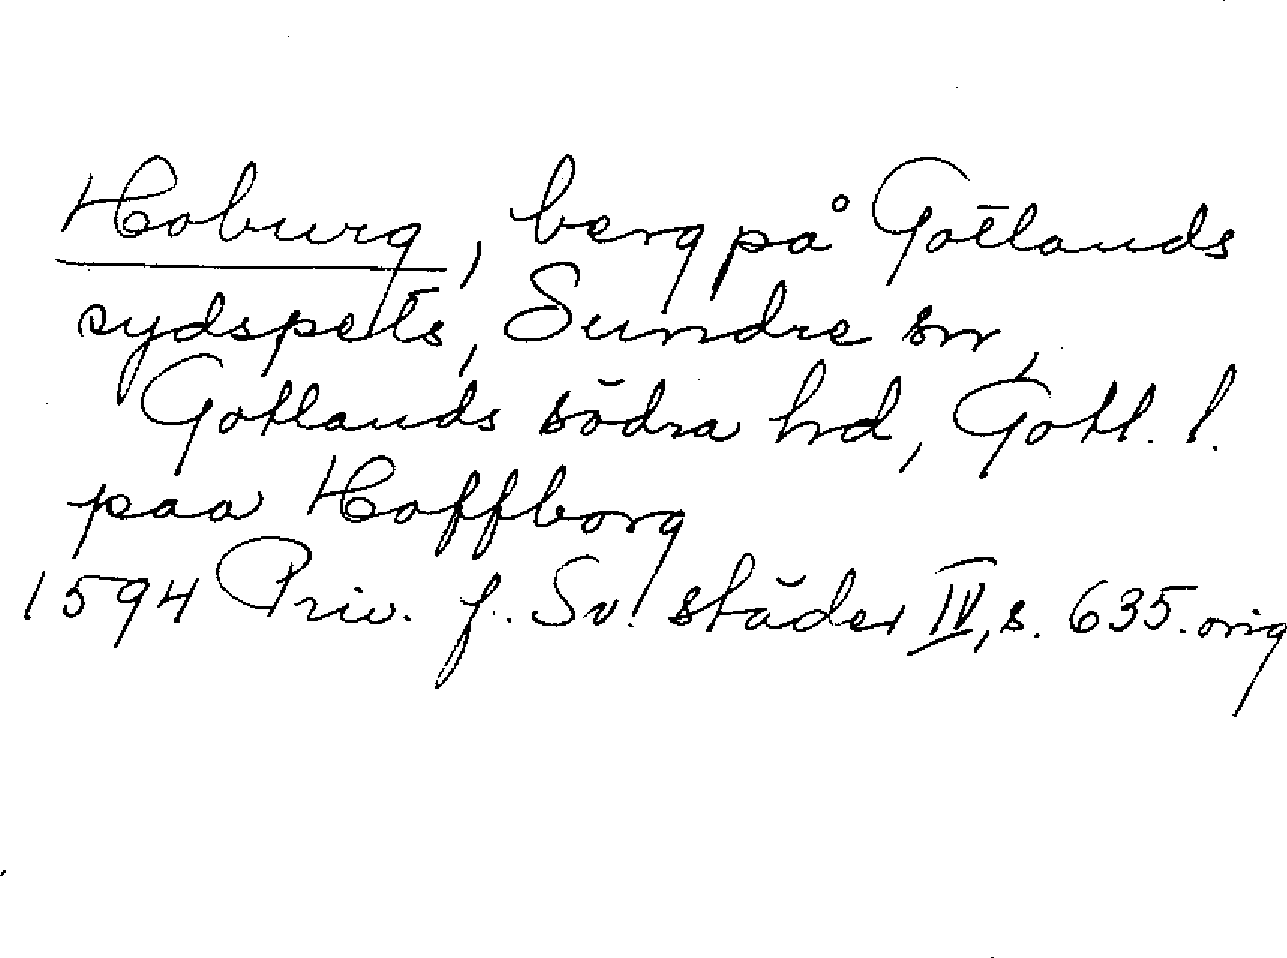 Hoburg, berg på Gotlands
sydspets, Sundre sn,
Gotlands södra hrd, Gotl. l.
paa Hoffborg
1594 Priv. f. Sv. städer IV, s. 635. orig